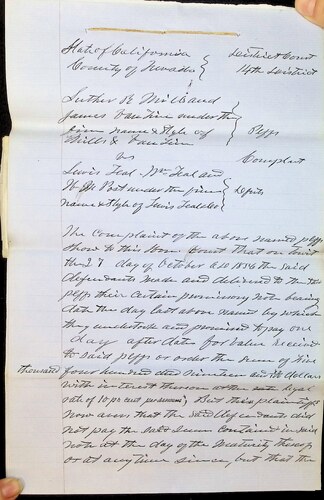 State of California } District Court
County of Nevada } 14th District
Luther R Mills and
James Van Tine under the
firm name & style of } Plffs
Mills & Van Tine
vs Complaint
Lewis Teal Wm Teal and
under the firm } Defts
name & style of Lewis Teal & Co
The Complaint of the above named plffs
show to this Hon Court that on
the 27 day of October A.D. 1856 the said
defendants made and delivered to the
plffs their certain promissory note bearing
date the day last above named by which
they undertook and promised to pay one
day after date for value received
to said plffs or order the sum of
thousand four hundred and nineteen dollars
with interest thereon at the legal
rate of 10 pr cent per annum; But this plaintiffs
now aver that the said defendants did
not pay the said sum contained in said
note at the day of the maturity thereof
or at any time since, but that the